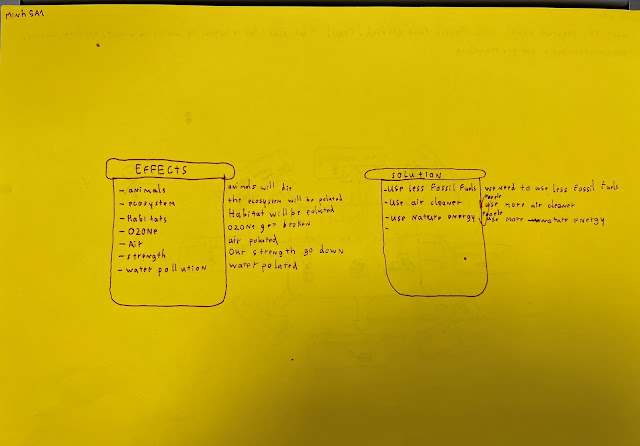 MINH 5A1
EFFECTS
- animals animals will die
- ecosystem the ecosystem will be poluted
- Habitats Habitat will be poluted
- OZONe OZONe get broken
- Air air poluted
- strength Our strength go down
- water pollution water poluted
SOLUTION
- Use less Fossil Fuels we need to use less Fossil Fuels
- Use air cleaner People use more air cleaner
- Use Nature energy People use more nature energy
-